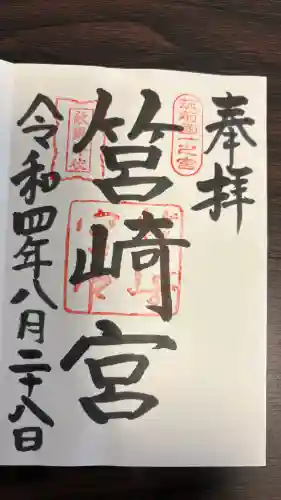 奉拝
筑前國一之宮
筥崎宮
敵國降伏
令和四年八月二十八日